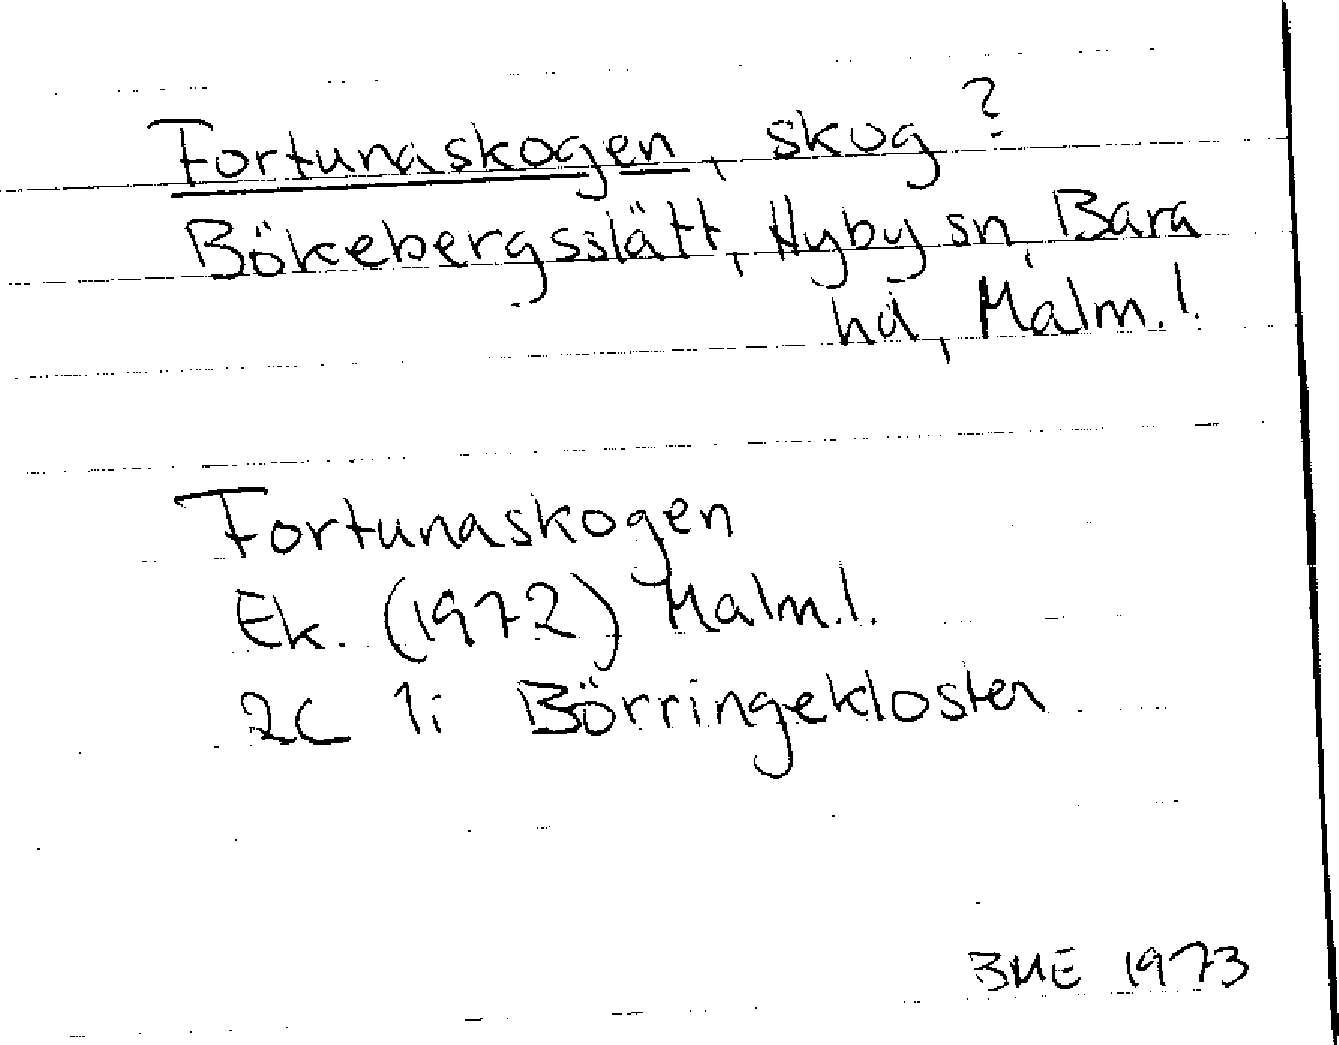 Fortunaskogen, skog?
Bökebergsslätt, Hyby sn, Bara
hd, Malm.l.
Fortunaskogen
Ek. (1972) Malm.l.
2C 1i Börringekloster
BME 1973